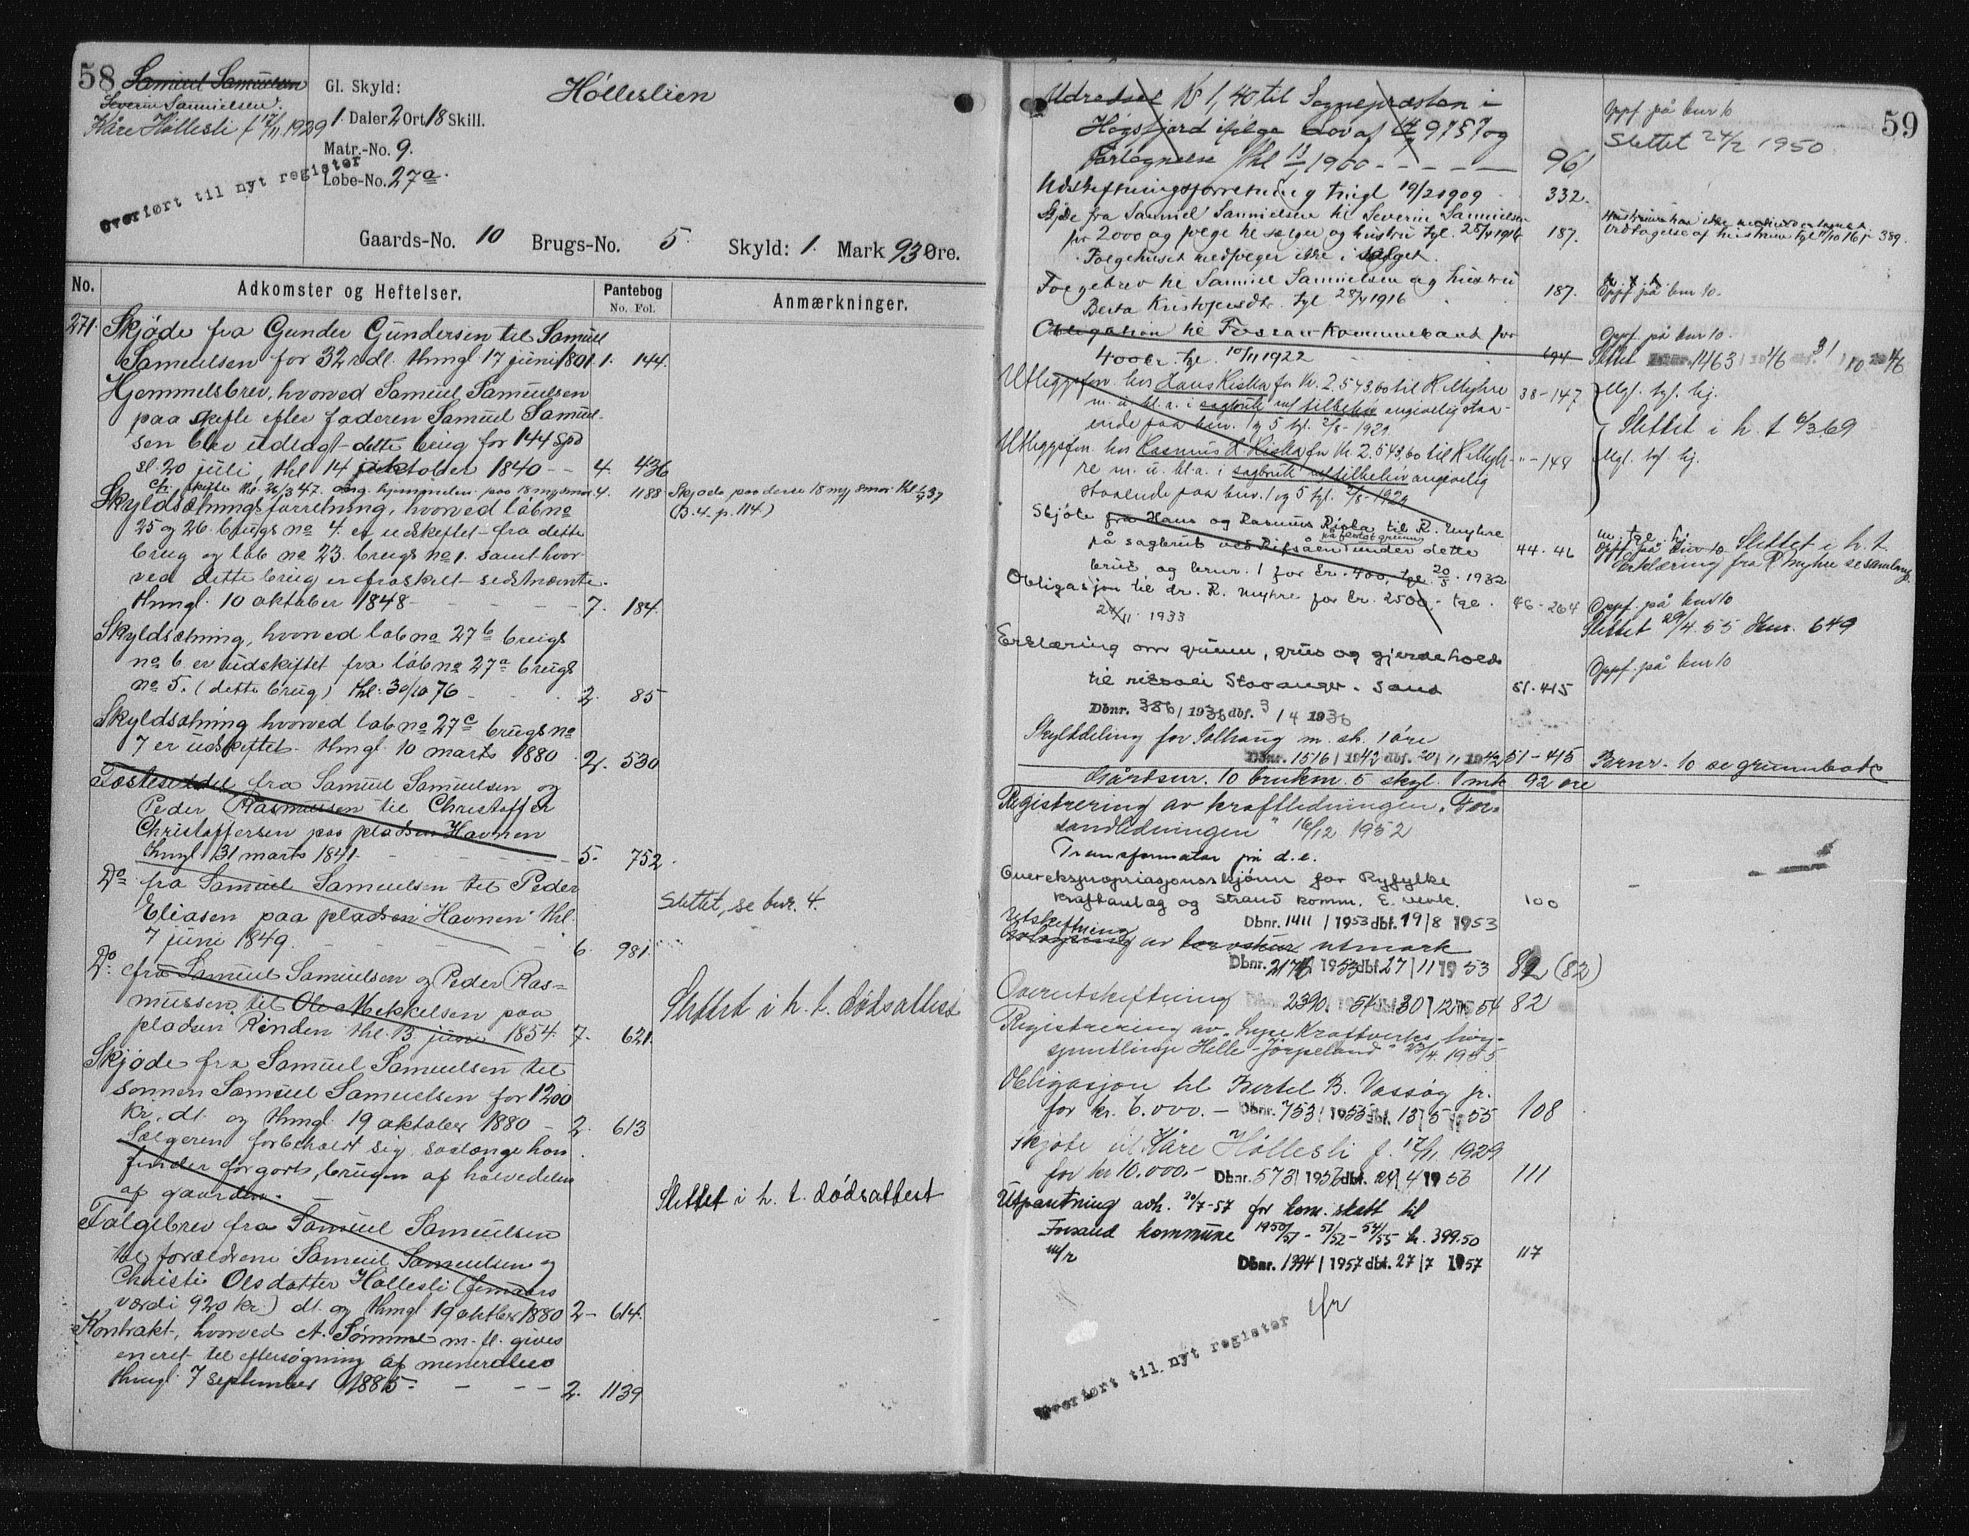 58
Samuel Samuelsen
Severin Samuelsen.
Kåre Høllesli f 17/11 1929
Overført til nyt register
Gl. Skyld:
1 Daler 2 Ort 18 Skill.
Matr.-No. 9.
Løbe-No. 27a.
Hølleslien
Gaards-No. 10 Brugs-No. 5. Skyld: 1. Mark 93 Øre.
No. Adkomster og Heftelser. Pantebog Anmærkninger.
No. Fol.
271. Skjøde fra Gunder Gundersen til Samuel
Samuelsen for 32 rdl. thingl 17 juni 1801. 1. 144.
Hjemmelsbrev, hvorved Samuel Samuelsen
paa skifte efter faderen Samuel Samuel-
sen blev udlagt dette brug for 144 Spd
sl. 20 juli, thl 14 oktober 1840 -- 4. 436
4. 1188 Skjøde paa disse 18 mrk smør thl
(B. 4. p. 114)
Skyldsætningsforretning, hvorved løb no
25 og 26 brugs no 4. er udskiftet fra dette
brug og løb no 23. brugs no 1. samt hvor-
ved dette brug er fraskilt sidstnævnte.
thingl. 10 oktober 1848 - - - 7. 184.
Skyldsætning, hvorved løb no 27b brugs
no 6 er udskiftet fra løb no 27a brugs
no 5. (dette brug) thl. 30/10 76 - - 2. 85
Skyldsætning hvorved løb no 27c brugs no
7 er udskiftet. thingl 10 marts 1880 2. 530
Fæsteseddel fra Samuel Samuelsen og
Peder Rasmussen til Christoffer
Christoffersen paa pladsen Havnen
thingl 31 marts 1841 - - - 5. 752.
Do fra Samuel Samuelsen til Peder
Eliasen paa pladsen Havnen thl.
7 juni 1849. - - - 6. 981.
Slettet, se bnr. 4.
Do fra Samuel Samuelsen og Peder Ras-
mussen til Ole Mekkelsen paa
pladsen Rinden thl. 13 juni 1854. 7. 621.
Slettet i h. t. dødsattest
Skjøde fra Samuel Samuelsen til
sønnen Samuel Samuelsen for 1200
kr, dt. og thingl. 19 oktober 1880 - 2. 613
Sælgeren forbeholdt sig, saalænge han
finder for godt, brugen af halvedelen
af gaarden.
Slettet i h. t. dødsattest
Følgebrev fra Samuel Samuelsen
til forældrene Samuel Samuelsen og
Christi Olsdatter Høllesli (femaars
værdi 920 kr.) dt. og thingl 19 oktber 1880 2 - 614.
Kontrakt, hvorved A. Sømme m. fl. gives
eneret til eftersøgning af mineralier
thingl. 7 september 1885 - - -- 2. 1139
59
Udredsel N 1,40 til Sognepræsten i
Høgsfjord ifølge Lov af 14/7 97 § 7 og
Fortegnelse thl 1900 - - - - 96
Opf på bnr 6
Slettet 24/2 1950.
Udskiftningsforretning tingl 19/2 1909 332.
Skjøde fra Samuel Samuelsen til Severin Samuelsen
for 2000 og følge til sælger og hustru tgl. 28/4 1916 187.
Følgehuset medfølger ikke i salget.
Følgebrev til Samuel Samuelsen og hustru
Berta Kristofersdtr. tgl 28/4 1916 187.
Opf på bnr 10.
Obligation til Fossan Kommunekasse for
400 kr. tgl. 10/11 1922 - - 694
Opf på bnr 10.
Slettet 1463 1946 31/10 1946
Utleggsforr. hos Hans Riska for kr. 2.543,60 til R. Myhre
m. u. bl. a. i sagbruk m/ tilbehør angivelig staa-
ende paa bnr. 1 og 5 tgl. 2/8 - 1929 38-147
Mgl. tgl. hj.
Utleggsforr. hos Rasmus H. Riska for kr. 2.543,60 til R. Myh-
re m. u. bl. a. i sagbruk m/ tilbehør angivelig
staaende paa bnr. 1 og 5 tgl. 2/8 - 1929 " - 148
Mgl. tgl. hj.
Slettet i h. t 6/3 69
Skjøte fra Hans og Rasmus Riska til R. Myhre
på sagbruk ved Rifsåen under dette
på festet grunn
bruk og bnr. 1 for kr. 400, tgl. 20/5. 1932 44. 46
m. tgl. hj.
Opf på bnr 10 Slettet i h. t.
Erklæring fra R Myhre se samling.
Obligasjon til dr. R. Myhre for kr. 2500,- tgl.
24/11 1933 46 - 264
Opf. på bnr 10
Slettet 29/4. 55 dbnr. 649
Erklæring om grunn, grus og gjerdehold
til riksvei Stavanger - Sand 51. 415
Dbnr. 386 / 1936 dbf. 3 / 4 1936
Opf på bnr 10
Skylddeling for Solhaug m. sk. 1 øre
Dbnr. 1516 / 1942 dbf. 20 / 11 1942 51-415 Brnr. 10 se grunnbok
Gårdsnr. 10 bruksnr. 5 skyl. 1 mk 92 øre
Registrering av kraftledningen "For-
sandledningen" 16/12 1952
Transformator på d. e.
Overekspropriasjonsskjønn for Ryfylke
kraftanlag og Strand komm. E. verk. 100
Dbnr. 1411 / 1953 dbf. 19 / 8 1953
Utskiftning
av utmark
Dbnr. 2176 1953 dbf. 27 / 11 1953 82 (82)
Overutskiftning Dbnr. 2390. 54 dbf. 30 / 12 1954 82
Registrering av Lyse Kraftverks høy-
spentlinje Helle - Jørpeland" 22/4. 1955
Obligasjon til Bertel B. Vassøy jr.
for kr. 6.000. - Dbnr. 753 / 1955 dbf. 13 / 5 1955 108
Skjøte til Kåre Høllesli f. 17/11 1929
for kr 10.000.- Dbnr. 573 / 1956 dbf. 24 / 4 1956 111
Utpantning avh. 20/7-57 for kom. skatt til
Forsand kommune 1950/51 - 51/52 - 54/55 kr. 399.50
m/r Dbnr. 1394 / 1957 dbf. 27 / 7 1957 117
Overført til nyt register